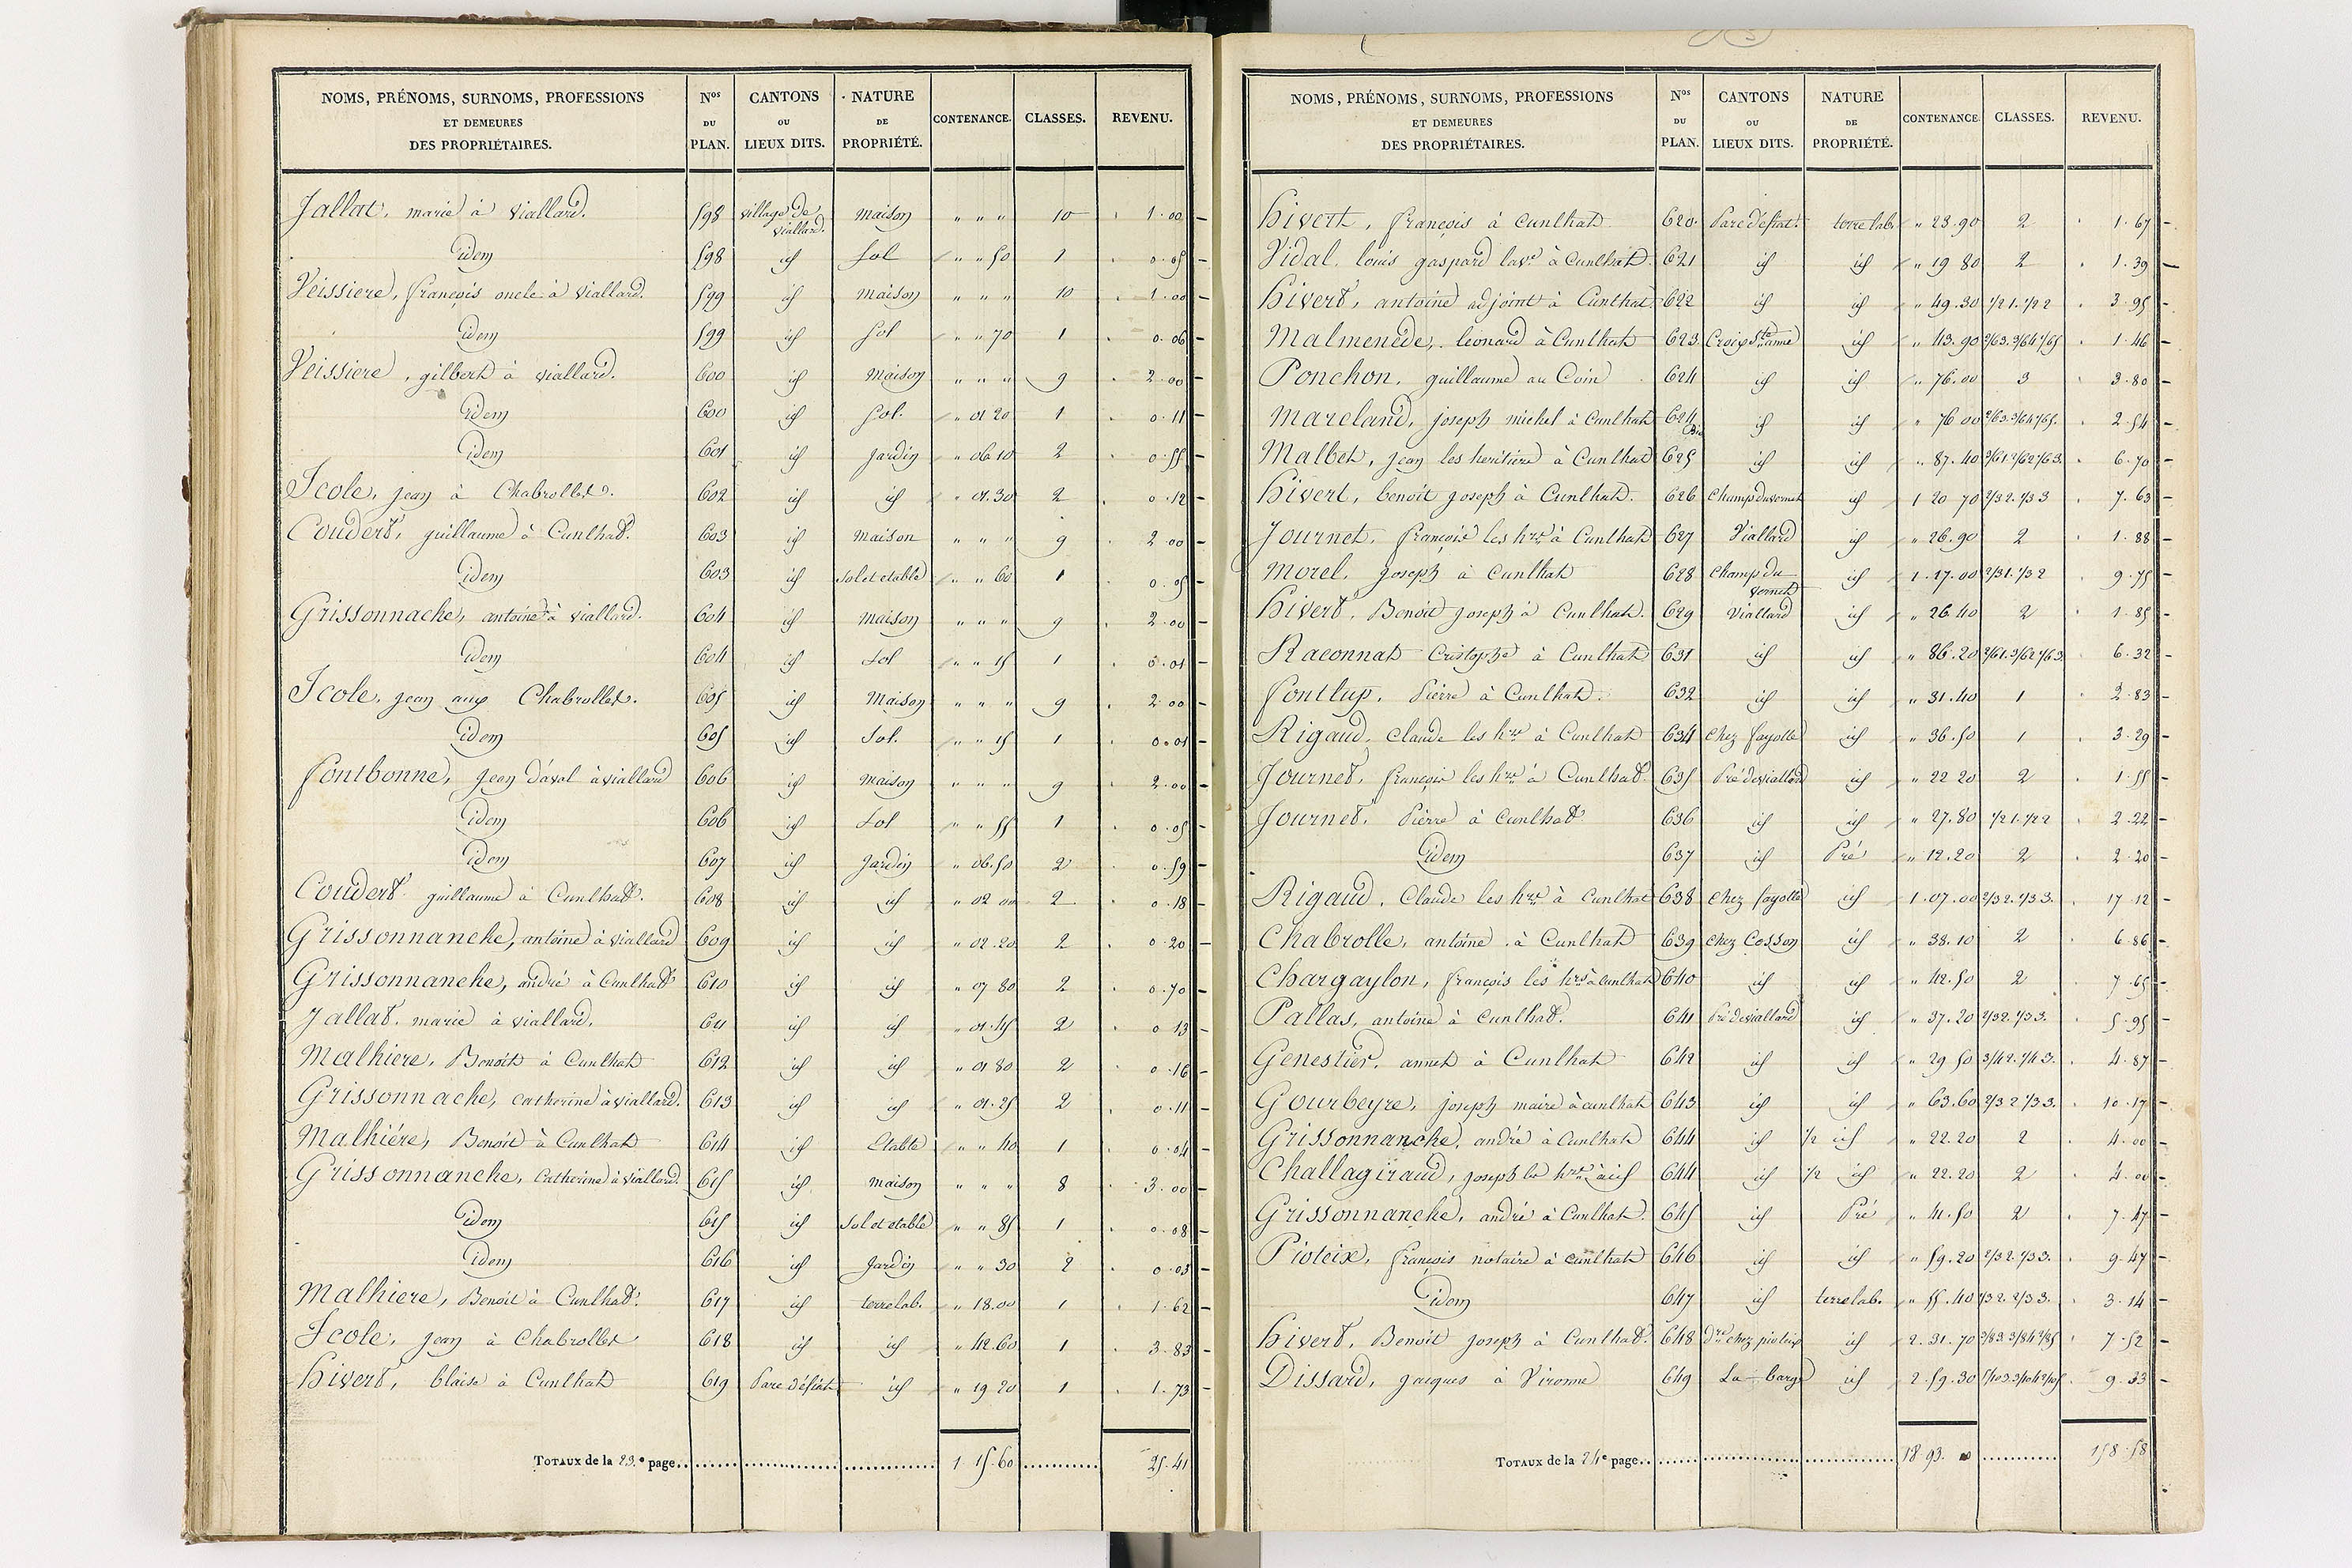 NOMS, PRÉNOMS, SURNOMS, PROFESSIONS ET DEMEURES DES PROPRIÉTAIRES. Nos DU PLAN. CANTONS OU LIEUX DITS. NATURE DE PROPRIÉTÉ. CONTENANCE. CLASSES. REVENU.
Jallat, marie à Viallard. 598 village de viallard. maison " " " 10 1.00
Idem 598 id Sol " " 50 1 0.05
Veissiere, françois oncle à Viallard. 599 id maison " " " 10 1.00
Idem 599 id Sol " " 70 1 0.06
Veissiere, gilbert à viallard. 600 id maison " " " 9 2.00
Idem 600 id Sol. " 01 20 1 0.11
Idem 601 id jardin " 06 10 2 0.55
Icole, jean à Chabrolles. 602 id id " 01.30 2 0.12
Coudert, guillaume à Cunlhat. 603 id maison " " " 9 2.00
Idem 603 id Sol et etable " " 60 1 0.05
Grissonnache, antoine à viallard. 604 id maison " " " 9 2.00
Idem 604 id Sol " " 15 1 0.01
Icole, jean aux Chabrolles. 605 id Maison " " " 9 2.00
Idem 605 id Sol. " " 15 1 0.01
fontbonne, jean d'aval à viallard 606 id maison " " " 9 2.00
Idem 606 id Sol " " 55 1 0.05
Idem 607 id Jardin " 06.50 2 0.59
Coudert guillaume à Cunlhat. 608 id id " 02 00 2 0.18
Grissonnanche, antoine à viallard 609 id id " 02.20 2 0.20
Grissonnanche, andré à Cunlhat 610 id id " 07 80 2 0.70
Jallat. marie à viallard. 611 id id " 01.45 2 0 13
Malhiere, Benoit à Cunlhat 612 id id " 01 80 2 0.16
Grissonnache, Catherine à viallard. 613 id id " 01.25 2 0.11
Malhiére, Benoit à Cunlhat 614 id Etable " " 40 1 0.04
Grissonnanche, Catherine à viallard. 615 id maison " " " 8 3.00
Idem 615 id Sol et etable " " 85 1 0.08
Idem 616 id Jardin " " 30 2 0.03
Malhiere, Benoit à Cunlhat. 617 id terre lab. " 18.00 1 1.62
Icole, jean à Chabrolles 618 id id " 42.60 1 3.83
hivert, blaise à Cunlhat 619 id " 19 20 1 1.73
TOTAUX de la 23.e page 1 15.60 25.41
NOMS, PRÉNOMS, SURNOMS, PROFESSIONS ET DEMEURES DES PROPRIÉTAIRES. Nos DU PLAN. CANTONS OU LIEUX DITS. NATURE DE PROPRIÉTÉ. CONTENANCE. CLASSES. REVENU.
hivert, françois à Cunlhat 620 terre lab. " 23.90 2 1.67
Vidal. louis gaspard à Cunlhat. 621 id id " 19 80 2 1.39
hivert, antoine adjoint à Cunlhat 622 id id " 49.30 1/2 1. 1/2 2 3.95
Malmenède, léonard à Cunlhat 623 Croix Ste anne id " 43.90 1.46
Ponchon, guillaume au Coin 624 id id " 76.00 3 3.80
Mareland, joseph michel à Cunlhat 624 bis id id " 76 00 2.54
Malbet, jean les heritiers à Cunlhat 625 id id " 87.40 6.70
hivert, benoît joseph à Cunlhat. 626 Champ du vernet id 1 20 70 2/3 2. 1/3 3 7.63
Journet, françois les hrs à Cunlhat 627 Viallard id " 26.90 2 1.88
Morel. joseph à Cunlhat 628 Champ du vernet id 1.17.00 2/3 1. 1/3 2 9.75
hivert, Benoit joseph à Cunlhat. 629 Viallard id " 26 40 2 1.85
Raconnat Cristophe à Cunlhat 631 id id " 86.20 6.32
fontlup, Pierre à Cunlhat. 632 id id " 31.40 1 2.83
Rigaud, Claude les hrs à Cunlhat 634 chez fayolle id " 36.50 1 3.29
Journet, françois les hrs à Cunlhat 635 Pré de viallard id " 22 20 2 1.55
Journet, Pierre à Cunlhat 636 id id " 27.80 1/2 1. 1/2 2 2.22
Idem 637 id Pré " 12.20 2 2.20
Rigaud, Claude les hrs à Cunlhat 638 chez fayolle id 1.07.00 2/3 2. 1/3 3. 17 12
Chabrolle, antoine à Cunlhat 639 chez Cosson id " 38.10 2 6.86
Chargaylon, françois les hrs à cunlhat 640 id id " 42.50 2 7.65
Pallas, antoine à Cunlhat. 641 Pré de viallard id " 37.20 2/3 2. 1/3 3. 5.95
Genestier, annet à Cunlhat 642 id id " 29 50 3/4 2. 1/4 3. 4.87
Gourbeyre, joseph maire à cunlhat 643 id id " 63.60 2/3 2 1/3 3. 10.17
Grissonnanche, andré à Cunlhat 644 id 1/2 id " 22.20 2 4.00
Challagiraud, joseph les hrs à id 644 id 1/2 id " 22.20 2 4.00
Grissonnanche, andré à Cunlhat. 645 id Pré " 41.50 2 7.47
Pioteix, françois notaire à cunlhat 646 id id " 59.20 2/3 2. 1/3 3. 9.47
Idem 647 id terre lab. " 55.40 1/3 2. 2/3 3. 3.14
hivert, Benoit joseph à Cunlhat. 648 chez pioteix id 2.31.70 7.52
Dissard, jacques à Vironne 649 La barge id 2.59.30 9.33
TOTAUX de la 24e page 18.93. 158.58